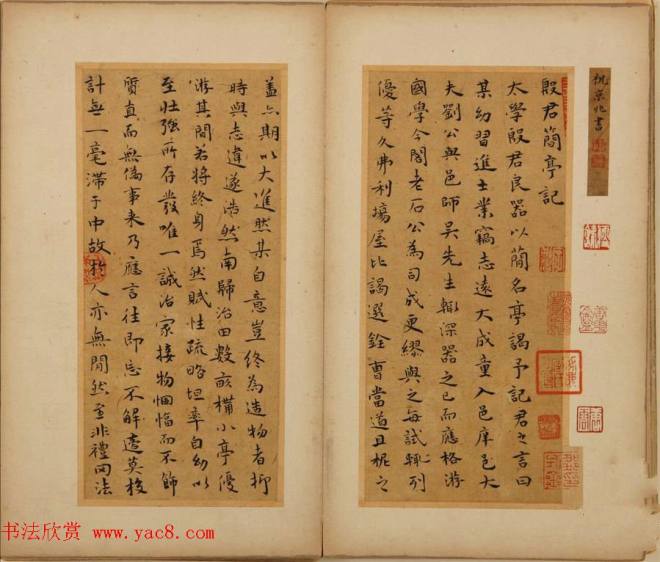 祝京兆書
殷君簡亭記
太學殷君良器以簡名亭謁予記君之言曰
某幼習進士業竊志遠大成童入邑庠邑大
夫劉公與邑師吳先生輙深器之已而應格游
國學今閣老石公為司成更繆與之每試輙列
優等久弗利塲屋比謁選銓曹當道且柅之
蓋亦期以大進然某自意豈終為造物者抑
時與志違遂浩然南歸治田數畝構小亭優
游其間若將終身焉然賦性疏略坦率自幼以
至壯強所存發唯一誠治家接物悃愊而不飾
質直而無偽事来乃應言往即忘不解遣莫校
計無一毫滞于中故於人亦無間然至非禮罔法
书法欣赏 www.yac8.com